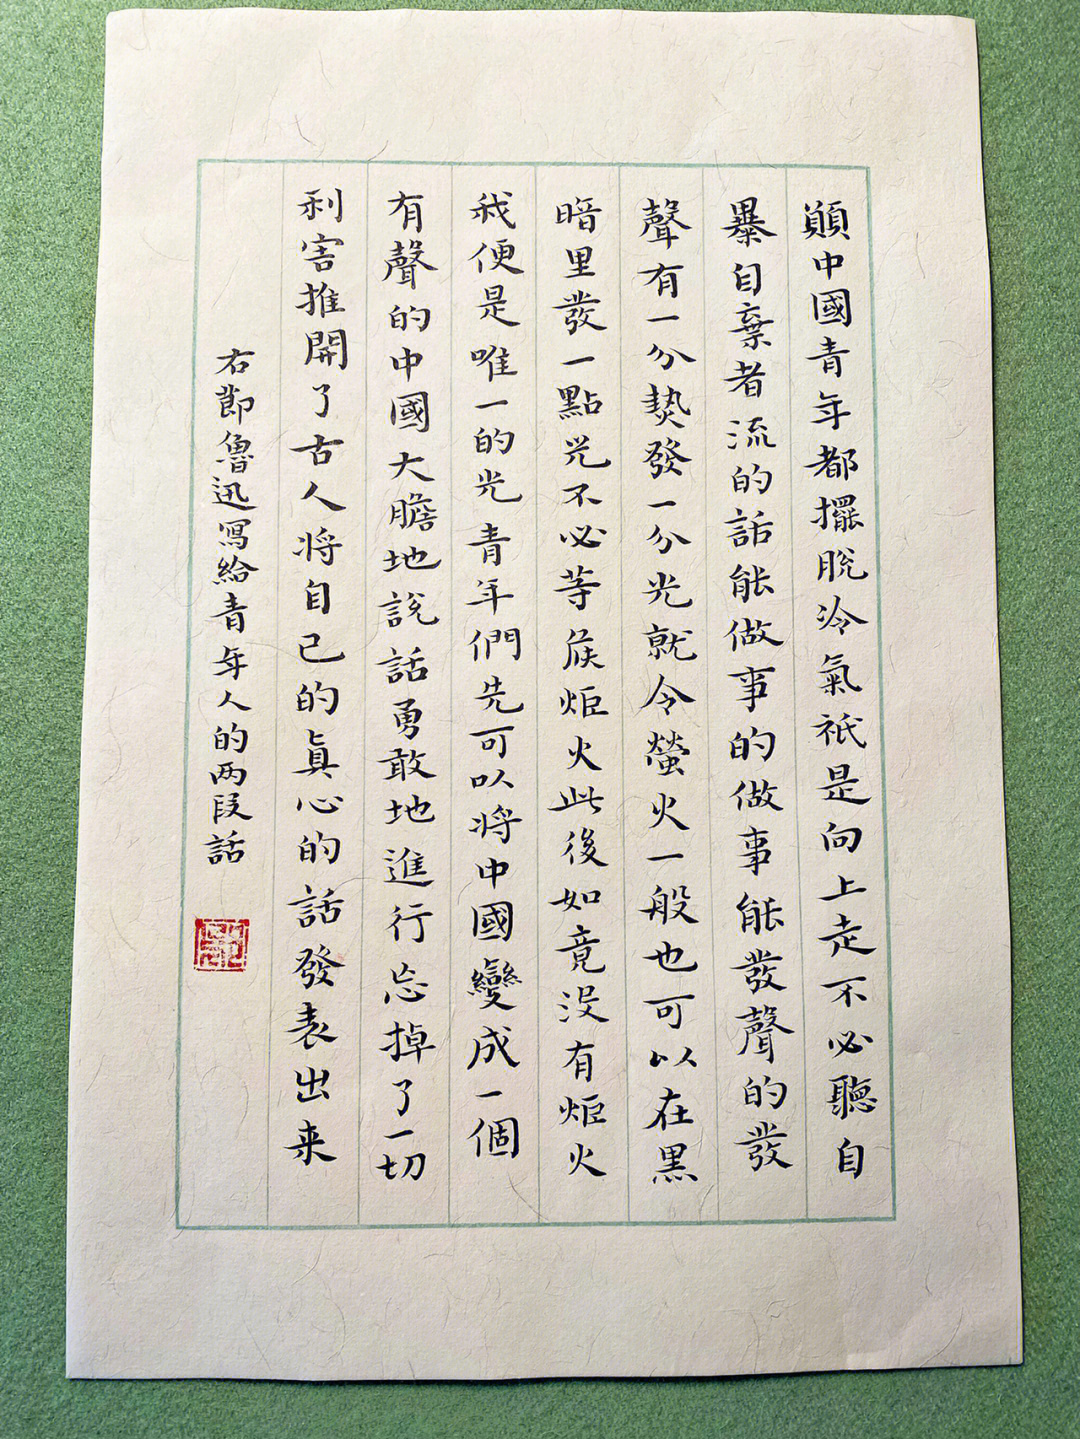 顚中國青年都擺脫冷氣祇是向上走不必聽自
暴自棄者流的話能做事的做事能發聲的發
聲有一分熱發一分光就令螢火一般也可以在黑
暗里發一點光不必等候炬火此後如竟没有炬火
我便是唯一的光青年們先可以將中國變成一個
有聲的中國大膽地說話勇敢地進行忘掉了一切
利害推開了古人將自己的真心的話發表出来
右節魯迅寫給青年人的两段話